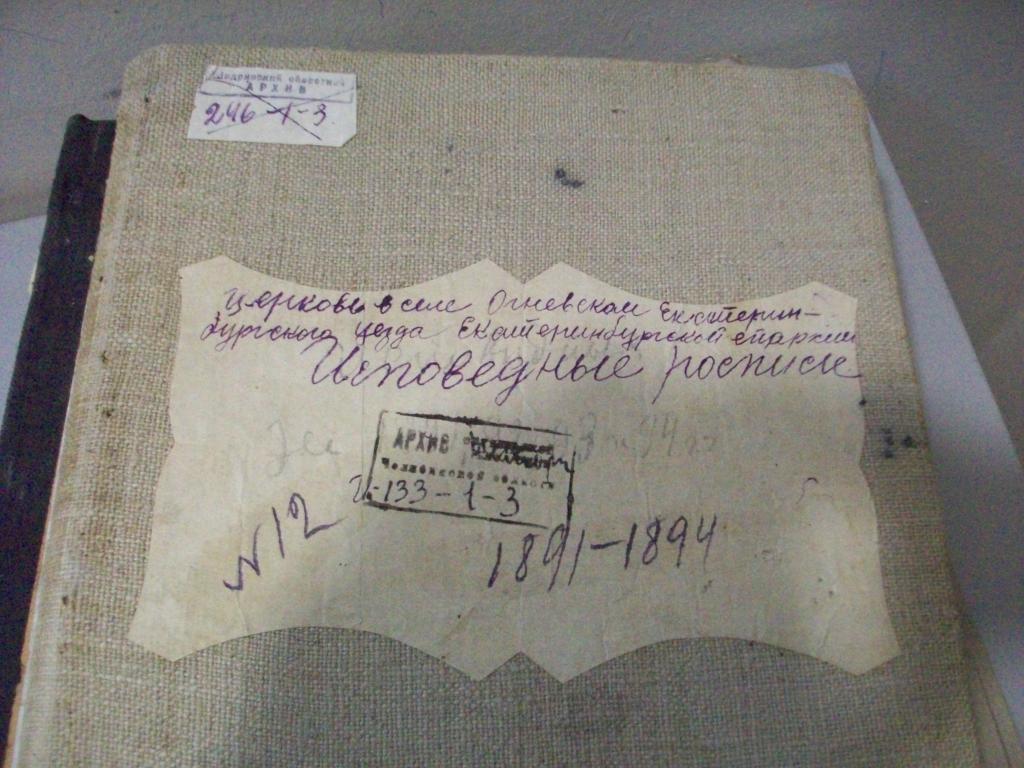 областной
АРХИВ
246-1-3
Церковь в селе Огневском Екатерин-
бургского уезда Екатеринбургской епархии
Исповедные росписи
АРХИВ
Челябинской области
И-133-1-3
N 12
1891-1894